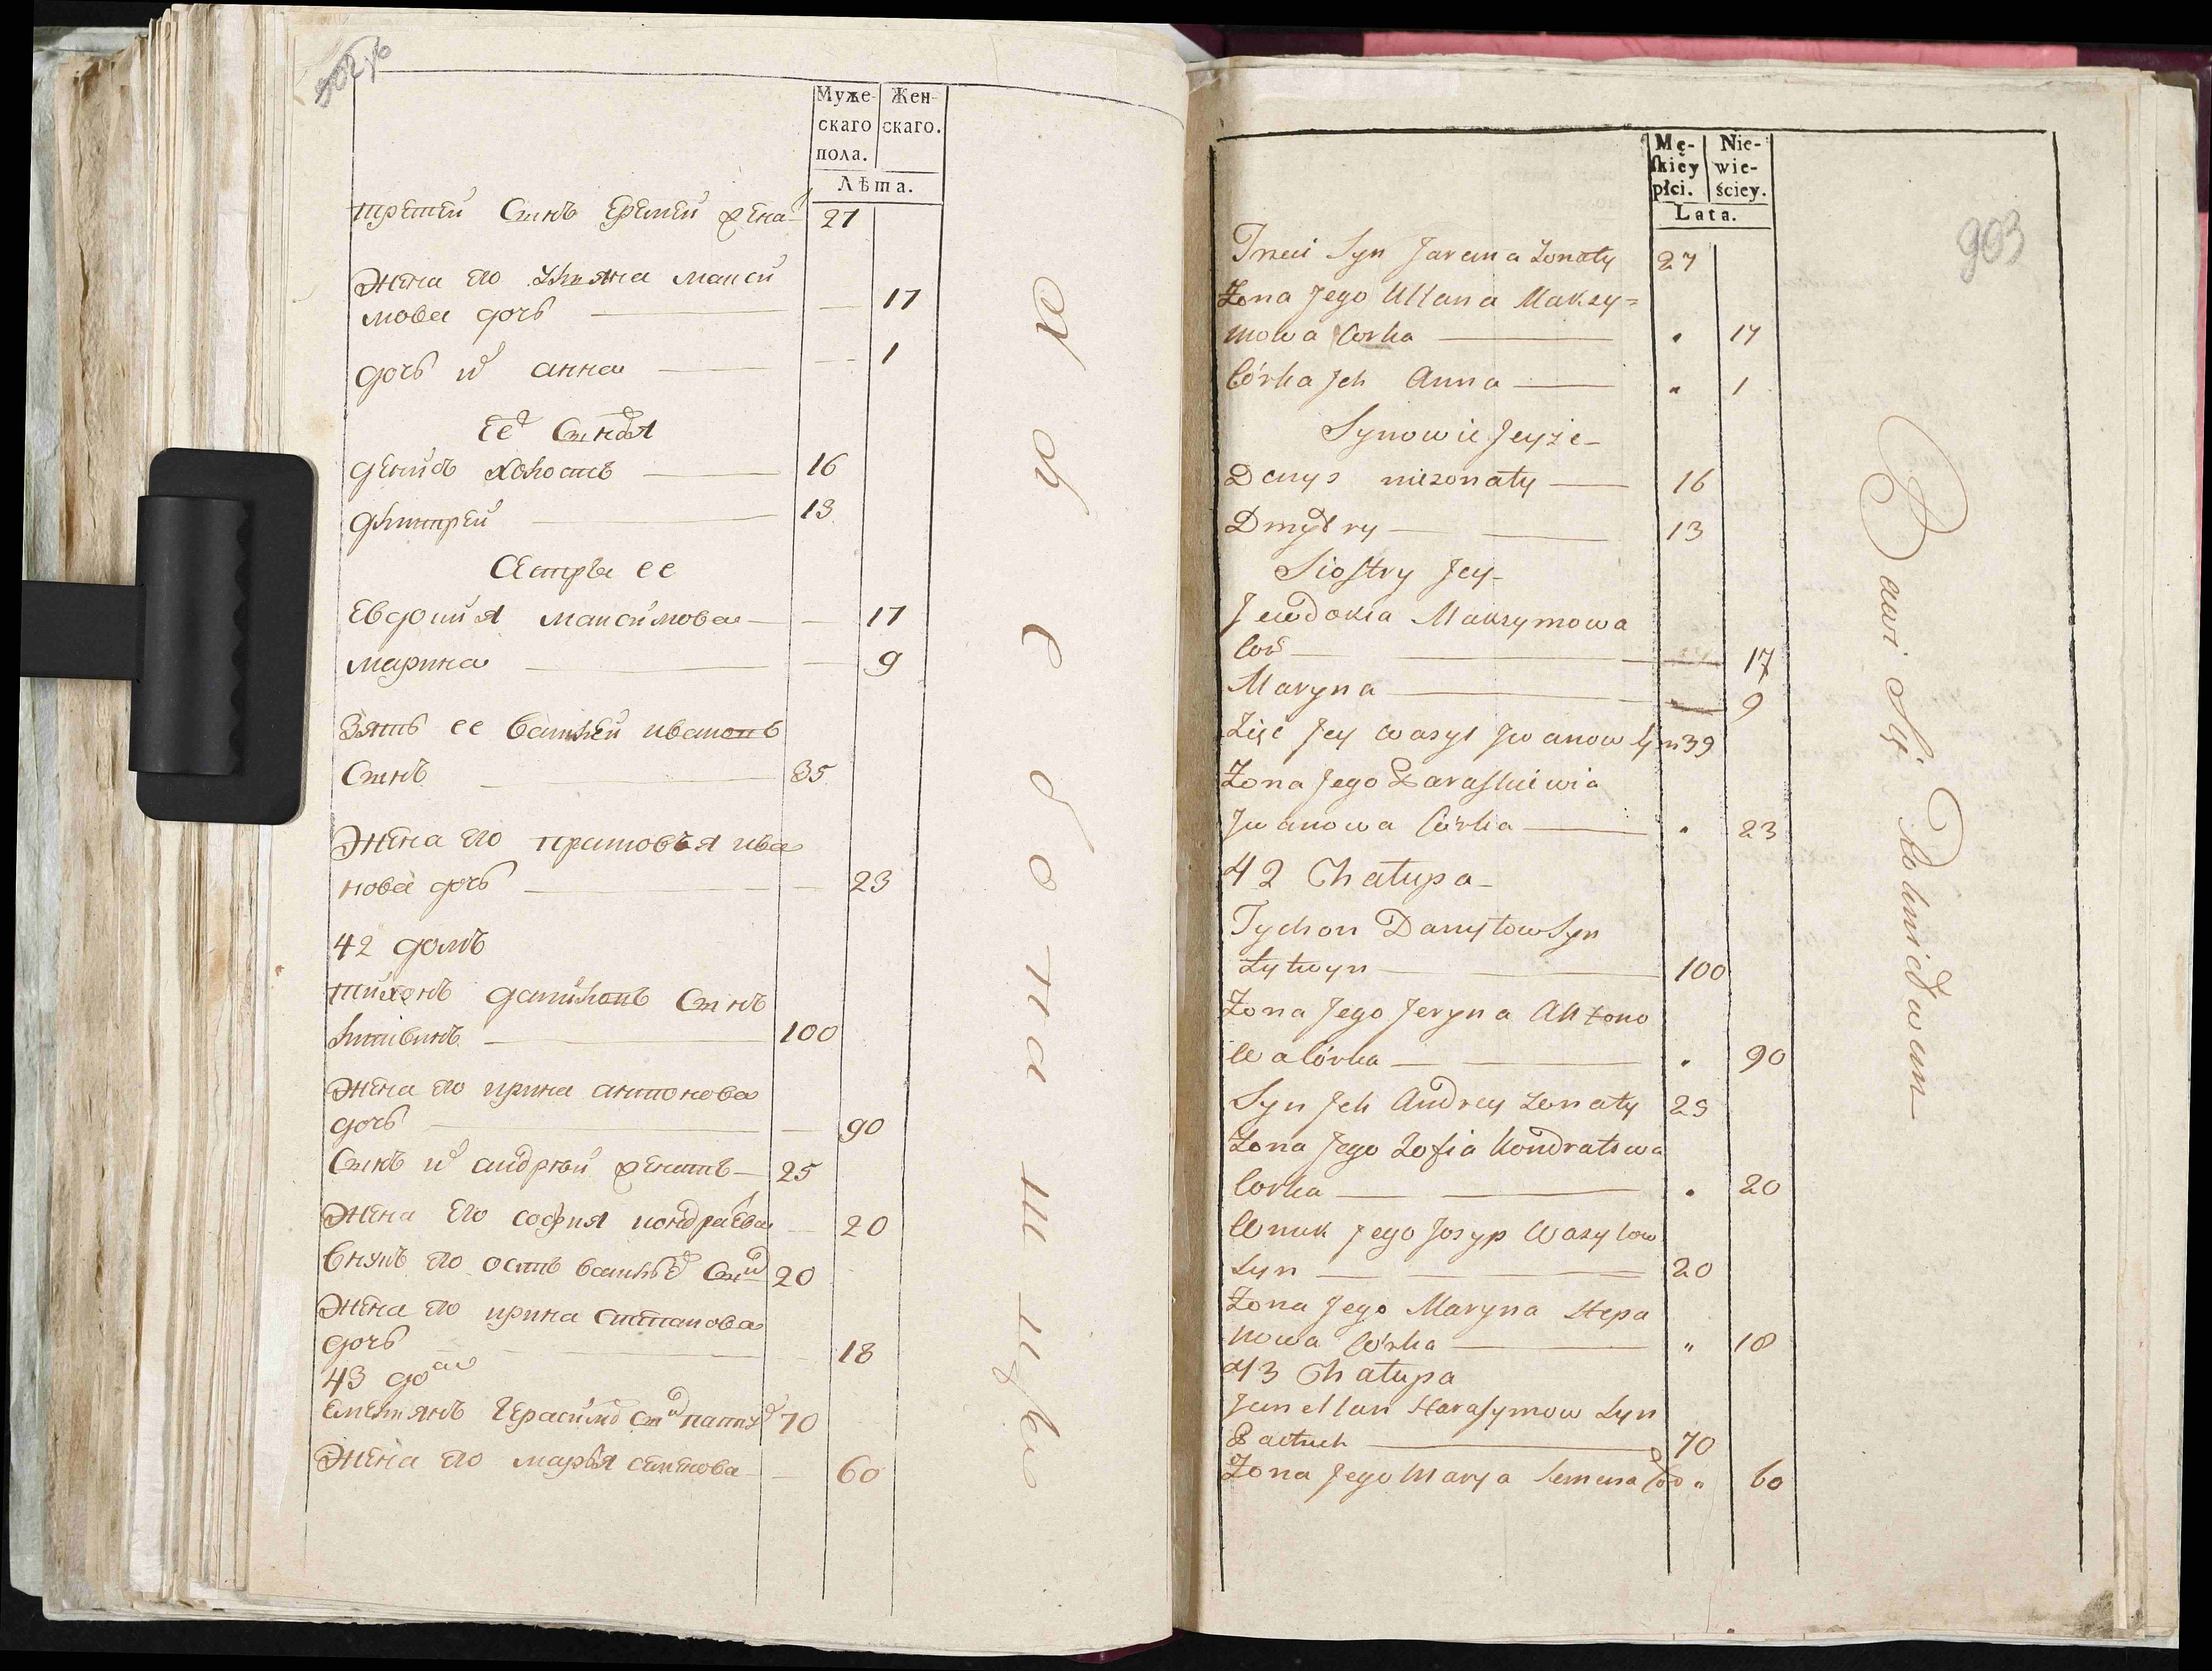 Муже-
скаго
пола.
Жен-
скаго.
Лѣта.
третей Сынъ Еремей жена 27
Жена его Ульяна макси
мова дочь — — 17
дочь их анна — — 1
Ее Сыновя
денисъ холостъ — 16
дмитрей — 13
Сестры ее
Евдокия максимова — — 17
марина — — 9
Зять ее василей ивановъ
Сынъ — 35
Жена его прасковья ива
нова дочь — — 23
42 домъ
тихонъ даниловъ Сынъ
литвинъ — 100
Жена его ирина антонова
дочь — — 90
Сынъ их андрей женатъ — 25
Жена Его софия кондратева — 20
Внукъ его осипъ васильев Сын 20
Жена его ирина степанова
дочь — — 18
43 дом
Емельянъ Герасимов сын 70
Жена его марья семенова — — 60
Работают
903
Mę-
skiey
płci.
Nie-
wie-
ściey.
Lata.
Trzeci Syn Jarema Zonaty 27
Żona Jego Ullana Maksy=
mowa Corka — " 17
Córka Jch Anna — " 1
Synowie Jeyże
Denys niezonaty — 16
Dmytry — — 13
Siostry Jey
Jewdokia Maksymowa
Cor — — 17
Maryna — — 9
Zięć Jey Wasyl Jwanow Syn 39
Żona Jego Paraskiewia
Jwanowa Córka — " 23
42 Chałupa
Tychon Danyłow Syn
Łytwyn — — 100
Żona Jego Jeryna Antono
wa Córka — — " 90
Syn Jch Andrey Zonaty 25
Żona Jego Zofia Kondratowa
Corka — — " 20
Wnuk Jego Josyp Wasylow
Syn — — 20
Żona Jego Maryna Stepa
nowa Córka — " 18
43 Chałupa
Jemellan Harasymow Syn
70
Żona Jego Marya Semena Cor " 60
Bawi Się Rolnictwem